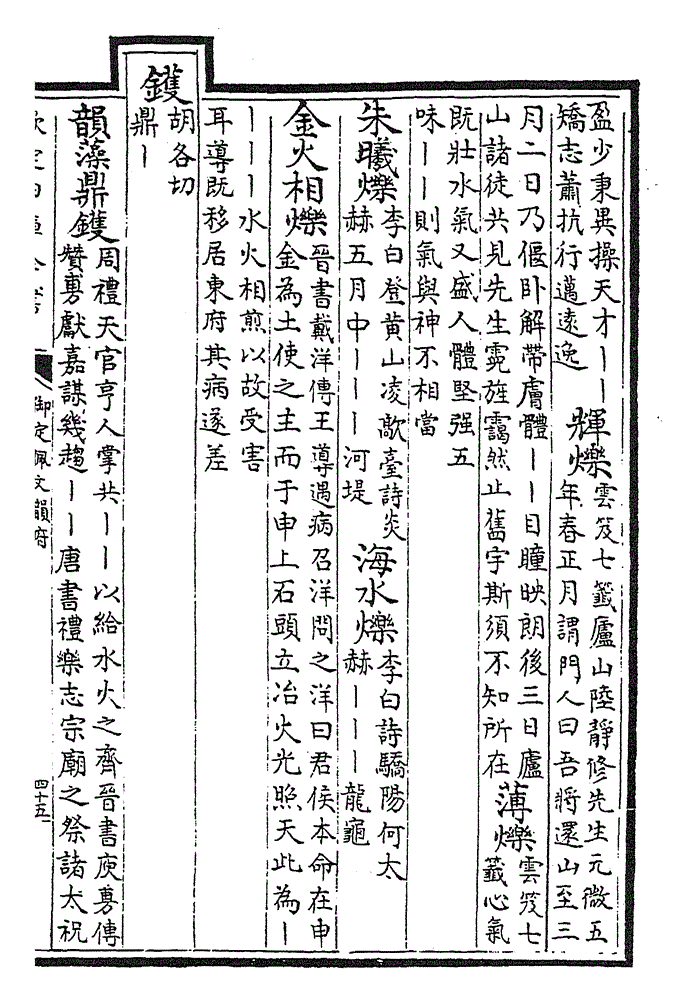 盈少秉異操天才丨丨
矯志蕭抗行邁遠逸
輝爍
雲笈七籤廬山陸靜修先生元微五
年春正月謂門人曰吾將還山至三
月二日乃偃卧解帶膚體丨丨目瞳映朗後三日廬
山諸徒共見先生霓旌靄然止舊宇斯須不知所在
薄爍
雲笈七
籤心氣
既壯水氣又盛人體堅强五
味丨丨則氣與神不相當
朱曦爍
李白登黄山凌歊臺詩炎
赫五月中丨丨丨河堤
海水爍
李白詩驕陽何太
赫丨丨丨龍龜
金火相爍
晉書戴洋傳王導遇病召洋問之洋曰君侯本命在申
金為土使之主而于申上石頭立冶火光照天此為丨
丨丨丨水火相煎以故受害
耳導既移居東府其病遂差
鑊
胡各切
鼎丨
韻藻鼎鑊
周禮天官亨人掌共丨丨以給水火之齊晉書庾旉傳
贊旉獻嘉謀幾趨丨丨唐書禮樂志宗廟之祭諸太祝
欽定四庫全書
御定佩文韻府
四十五